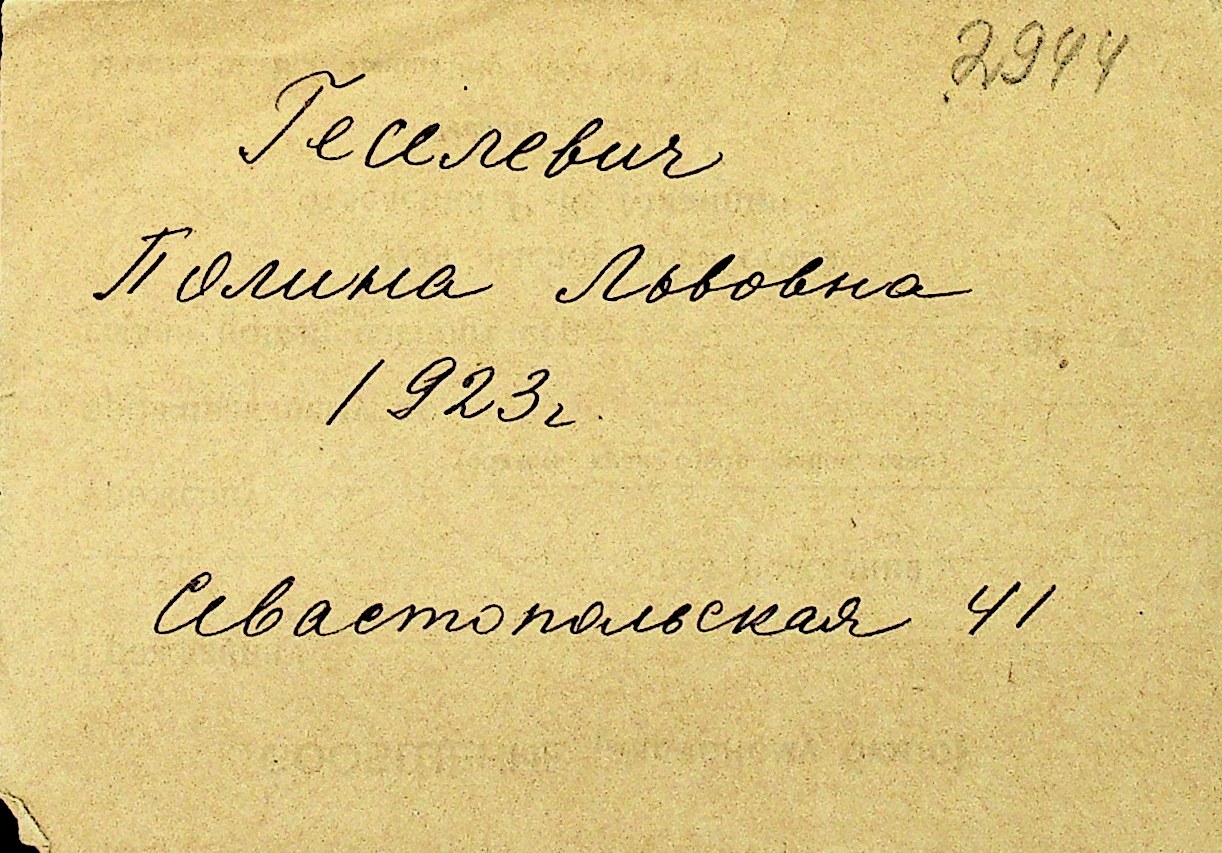 2944
Геселевич
Полина Львовна
1923г.
Севастопольская 41